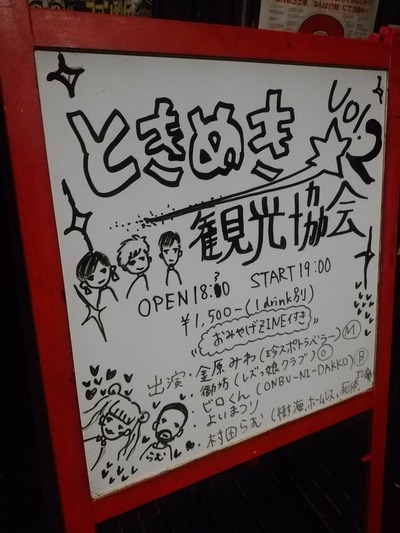 ときめき☆ Vol.2
観光協会
OPEN 18:30 START 19:00
¥1,500-(1drink別)
おみやげZINE付き
出演・金原みわ(珍スポトラベラー)Ⓜ
・働坊(レズっ娘クラブ)Ⓞ
・ピロくん(ONBU-NI-DAKKO)Ⓑ
・よいまつり
・村田らむ(樹海、ホームレス、死体、
らむ